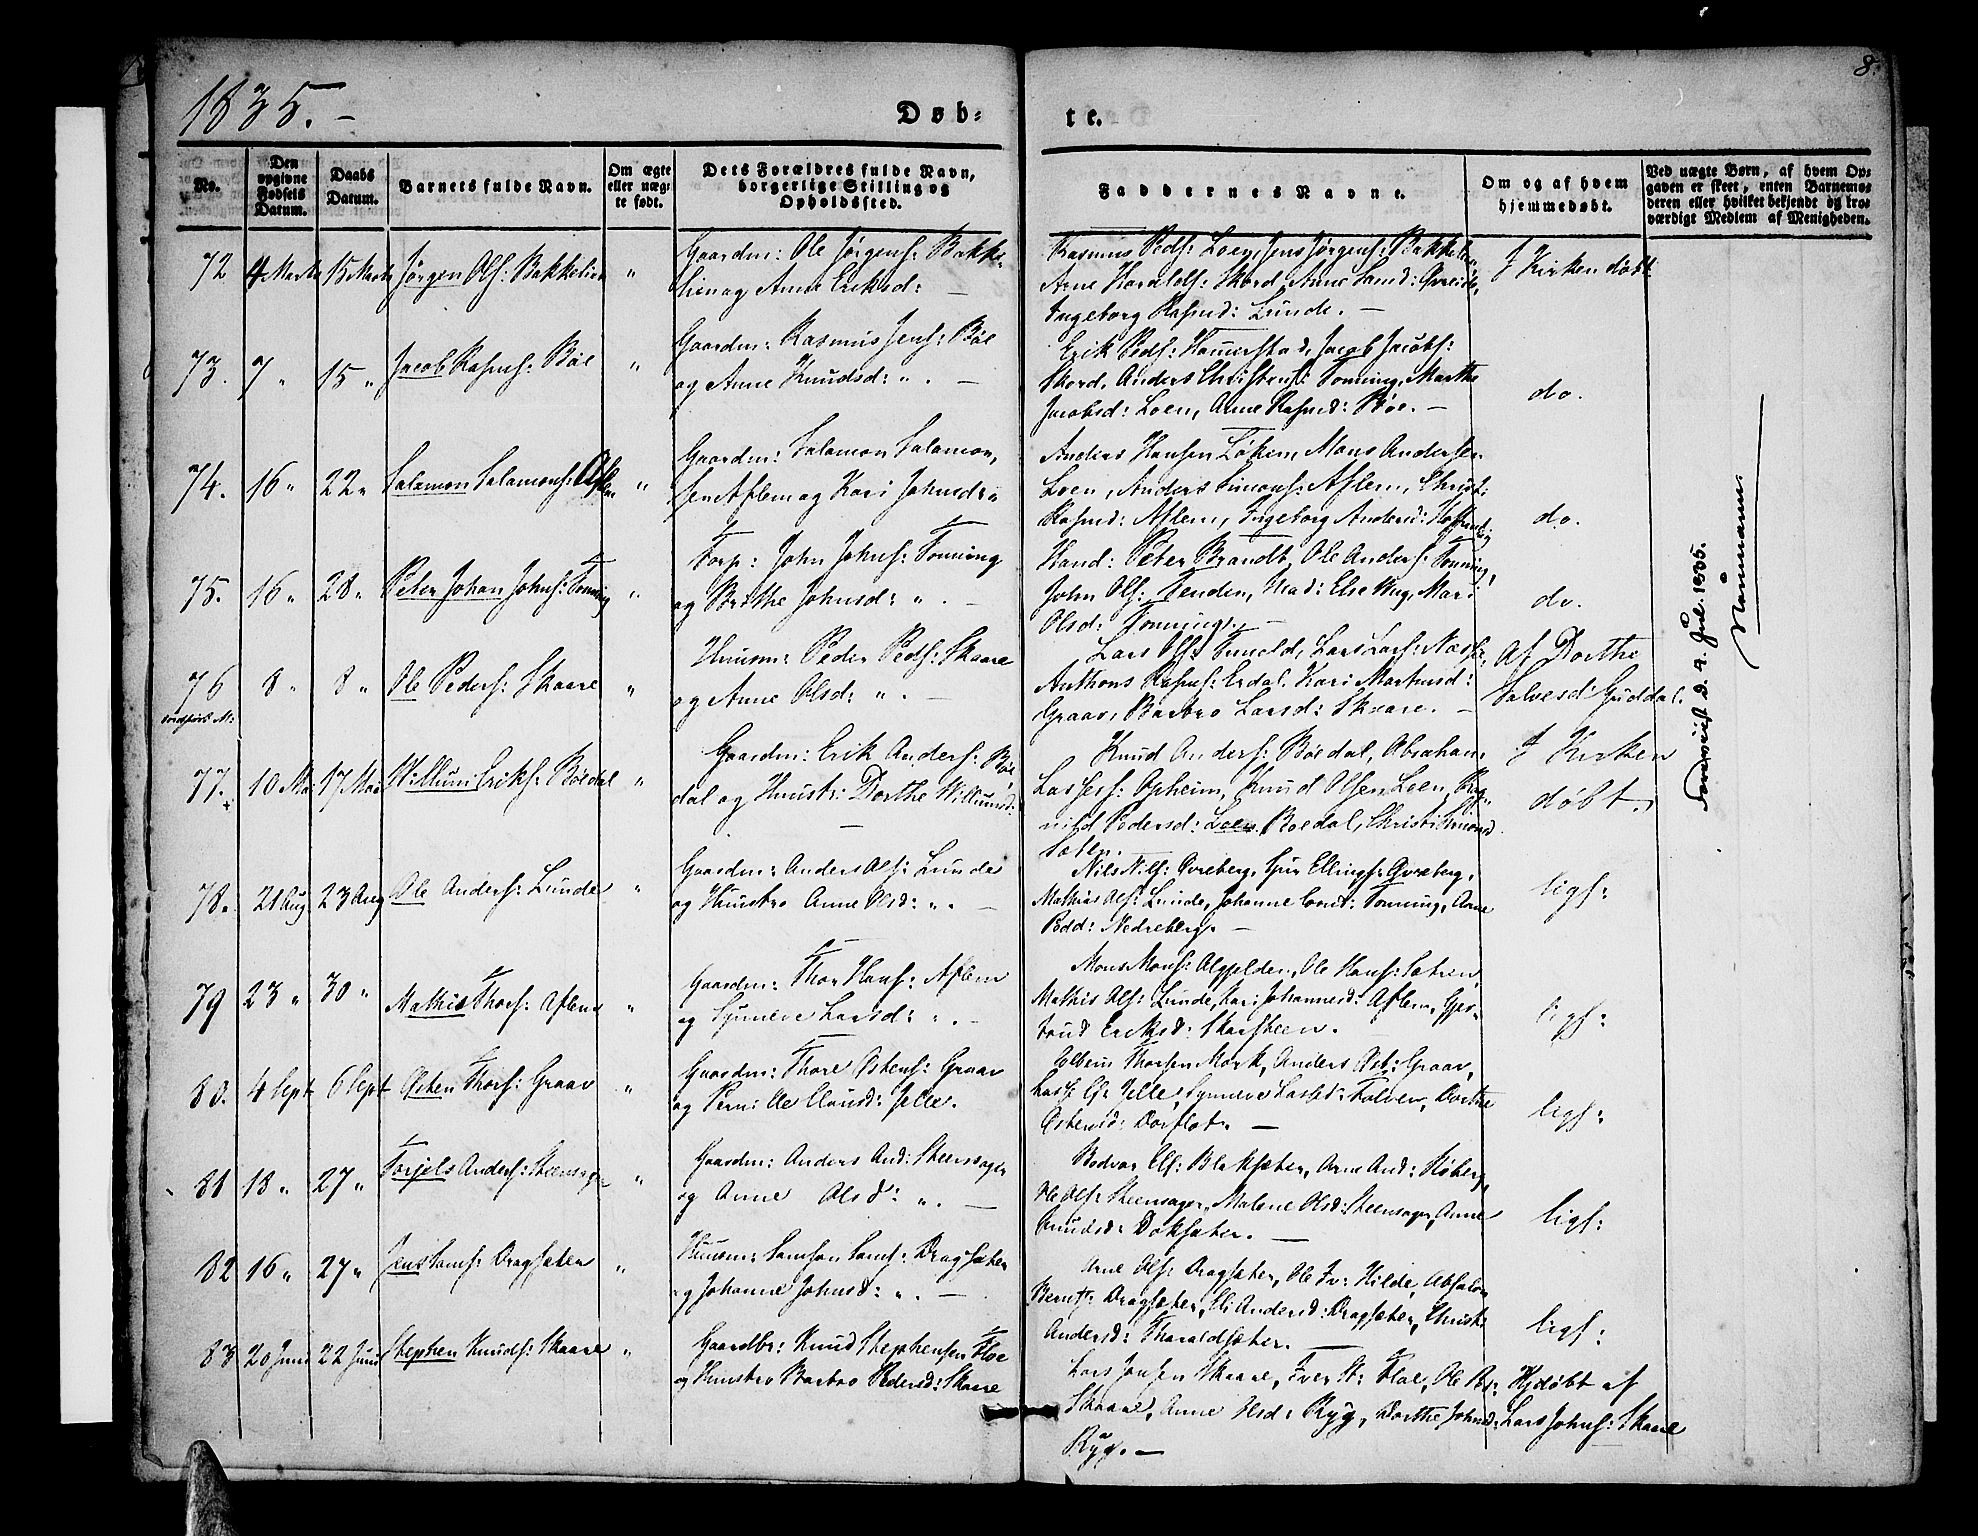 1835.-
8.
Døb-
te.
No.
Den opgivne Fødsels Datum.
Daabs Datum.
Barnets fulde Navn.
Om ægte eller uæg-te født.
Dets Forældres fulde Navn, borgerlige Stilling og Opholdssted.
Faddernes Navne.
Om og af hvem hjemmedøbt.
Ved uægte Børn, af hvem Op-gaven er skeet, enten Barnemo-deren eller hvilket bekjendt og tro-værdigt Medlem af Menigheden.
72 4 Marts 15 Marts Jørgen Ols: Bakkelien "
Gaardm: Ole Jørgens: Bakke-
lien og Anne Eriksd: —
Rasmus Peds: Loen, Jens Jørgens: Bakkelien,
Arne Haralds: Skord, Anne
Ingeborg Rasmd: Lunde. —
I Kirken døbt
73. 7 " 15 " Jacob Rasms: Bøe "
Gaardm: Rasmus Jens: Bøe
og Anne Knudsd: " . —
Erik Peds: Jacob Jacobs:
Skord, Anders Christens: Tonning, Marthe
Jacobsd: Loen, Anne Rasmd: Bøe. —
do.
74. 16 " 22 " Salamon Salamons: Aflem "
Gaardm: Salamon Salamon,
sen Aflem og Kari Johnsd: "
Anders Hansen Løken, Mons Andersen
Loen, Anders Simons: Aflem, Christi
Rasmd: Aflem, Ingeborg Andersd:
do.
75. 16 " 28 " Peter Johan Johns: Tonning "
Torp: John Johns: Tonning
og Brithe Johnsd: " . —
Hand: Peter Brandt, Ole Anders: Tonning,
John Ols: Tenden, Mad: Else Mari
Olsd: Tonning. —
do.
76 8 " 8 " Ole Peders: Skaare "
Huusm: Peder Peds: Skaare
og Anne Olsd: " . —
Lars Ols: Lars Lars: Næsse,
Anthons Rasms: Erdal, Kari Martinsd:
Graav, Barbro Larsd: Skaare. —
Af Dorthe
Salvesd: Guddal.
77. 10 Mai 17 Mai Willum Eriks: Bøedal "
Gaardm: Erik Anders: Bøe-
dal og Hustr: Dorthe Willumsd:
—
Knud Anders: Bøedal, Abraham
Lasses: Opheim, Knud Olsen Loen, Rag-
nild Pedersd: Loen, Bøedal, Christi Simonsd
Sæten.
I Kirken
døbt.
78. 21 Aug 23 Aug Ole Anders: Lunde "
Gaardm: Anders Ols: Lunde
og Huustro Anne Olsd: " . —
Nils Nils: Øvreberg, Guri Ellings: Øvreberg,
Mathias Ols: Lunde, Johanne Tonning, Anne
Pedd: Nedreberg. —
ligs:
79 23 " 30 " Mathis Thors: Aflem "
Gaardm: Thor Hans: Aflem
og Synneve Larsd: " . —
Mons Mons: Ole Hans: Sætren,
Mathis Ols: Lunde, Kari Johannesd: Aflem, Gjer-
trud Eriksd: Skarsteen.
ligs:
80. 4 Sept 6 Sept Østen Thors: Graav "
Gaardm: Thore Østens: Graav
og Pernille Clausd: Jelle.
Thorsen Mork, Anders Øst: Graav,
Lasse Jelle, Synneve Lassed: Folven, Dorthe
Østensd:
ligs:
81 18 " 27 " Torjels Anders: Steensager "
Gaardm: Anders And: Steensager
og Anne Olsd: " . —
Bodvar Els: Blaksæter, Arne And:
Ole Ols: Steensager, Malene Olsd: Steensager, Anne
Knudsd: Doksæter. —
ligs:
82 16 " 27 " Jens Sams: Dragsæter "
Huusm: Samson Sams: Dragsæter
og Johanne Johnsd: " . —
Arne Ols: Dragsæter, Ole Iv: Hilde, Absalon
Bernts: Dragsæter, Eli Andersd: Dragsæter, Christi
Andersd: Tharaldsæter. —
ligs:
83 20 Juni 22 Juni Stephen Knuds: Skaare "
Gaardbr: Knud Stephensen Floe
og Huustro Barbro Pedersd: Skaare
Lars Johnsen Skaare, Iver St: Floe, Ole Ped:
Skaare, Anne Olsd: Ryg, Dorthe Johnsd:
Ryg. —
Hjdøbt af
Lars Johns: Skaare
d. 9. Jul. 1835.